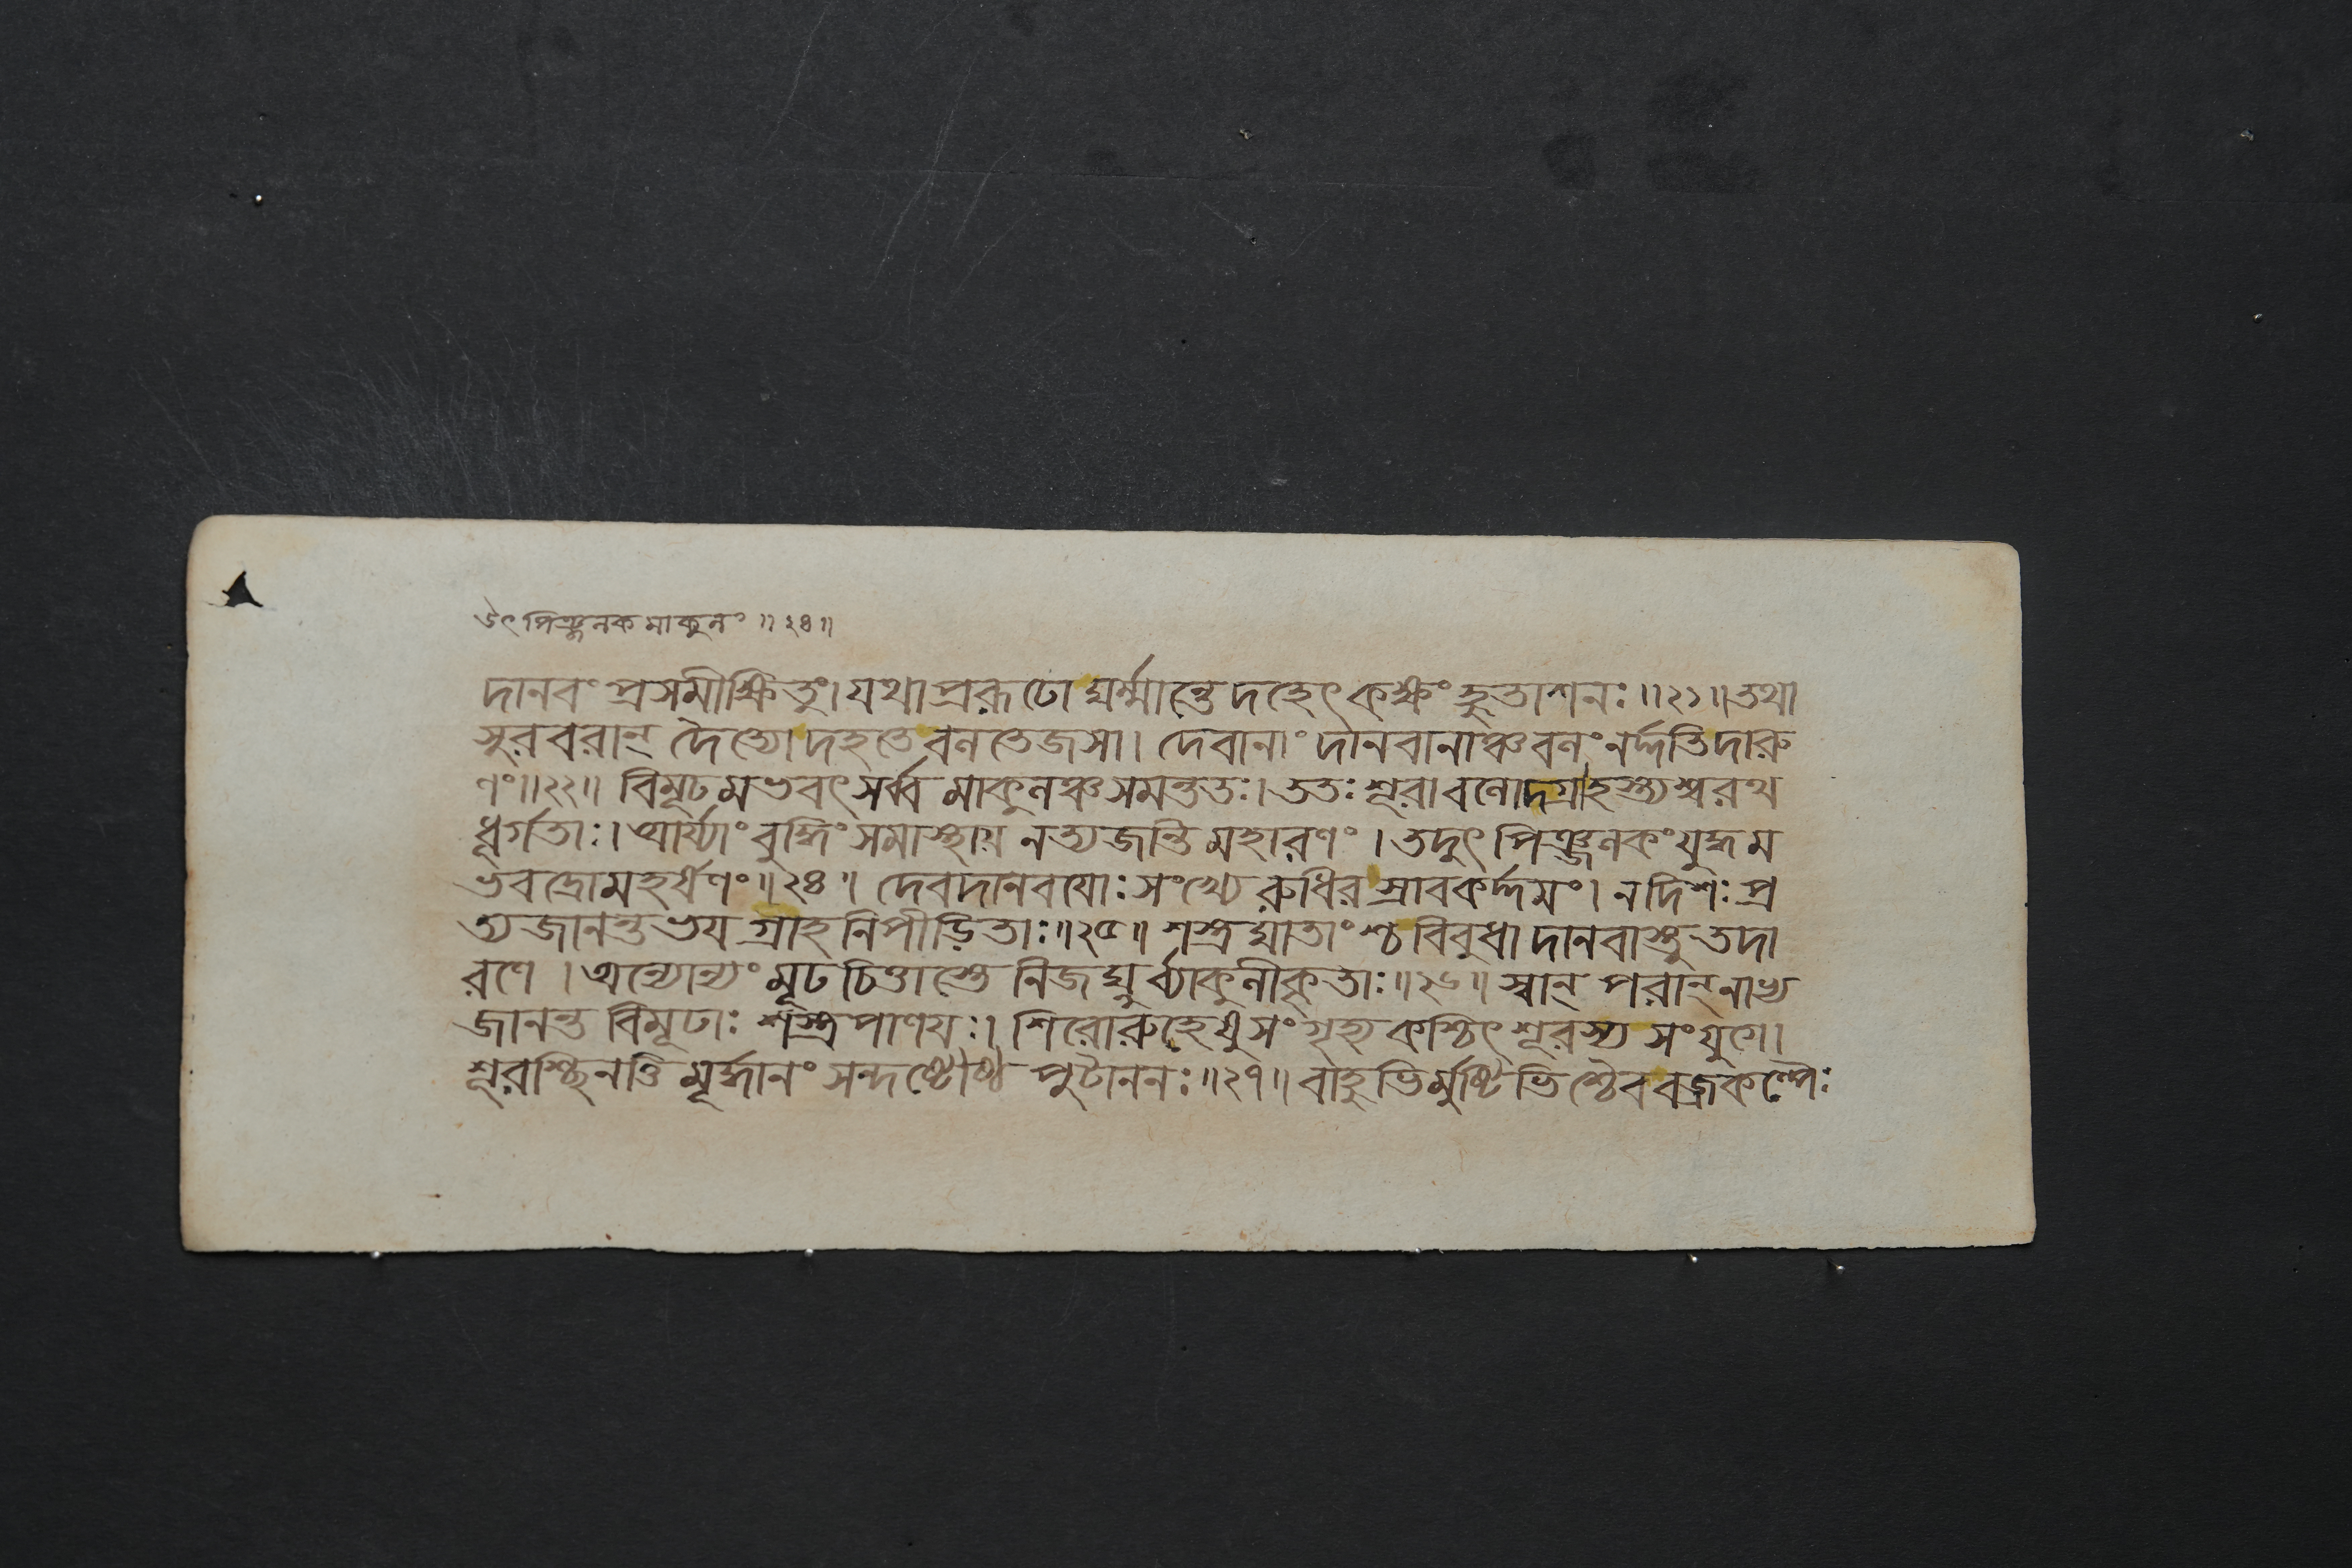 উৎপিঞ্জলকমাকুলং ॥ ২৪॥
দানবং প্রসমীক্ষিতুং। যথা প্ররূঢো ঘর্ম্মান্তে দহেৎ কক্ষং হুতাশনঃ ॥২১॥ তথা
সুরবরান্ দৈত্যো দহতে বলতেজসা। দেবানাং দানবানাঞ্চ বলং নর্দ্দতি দারু
ণং॥২২॥ বিমূঢমভবৎ সর্ব্বমাকুলঞ্চ সমন্ততঃ। ততঃ শূরা বলোদগ্রা হস্ত্যশ্বরথ
ধূর্গতাঃ। আর্য্যাং বুদ্ধিং সমাস্থায় নত্যজন্তি মহারণং । তদুৎপিঞ্জলকং যুদ্ধম
ভবদ্রোমহর্ষণং॥২৪॥ দেবদানবযোঃ সংখ্যে রুধিরস্রাবকর্দ্দমং। ন দিশঃ প্র
ত্যজানন্ত ভযগ্রাহনিপীড়িতাঃ॥২৫॥ শস্ত্রঘাতাংশ্চ বিবুধা দানবাস্তু তদা
রণে । অন্যোন্যং মূঢচিত্তাস্তে নিজঘ্নুর্ব্যাকুলীকৃতাঃ॥২৬॥ স্বান্ পরান্নাভ্য
জানন্ত বিমূঢাঃ শস্ত্রপাণযঃ। শিরোরুহেষু সংগৃহ্য কশ্চিৎ শূরস্য সংযুগে।
শূরশ্ছিনত্তি মূর্দ্ধানং সন্দষ্টৌষ্ঠপুটাননঃ॥২৭॥ বাহুভির্মুষ্টিভিশ্চৈব বজ্রকল্পৈঃ